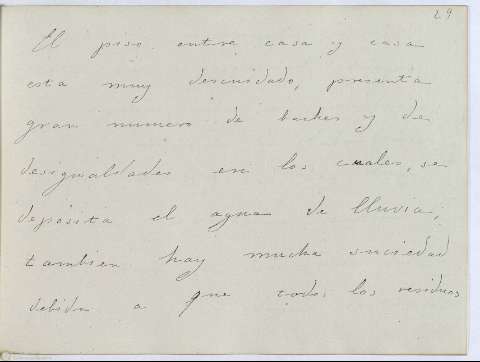 29
El piso entre casa y casa
esta muy descuidado, presenta
gran numero de baches y de
desigualdades en los cuales, se
deposita el agua de lluvia,
tambien hay mucha suciedad
debida a que todos los residuos